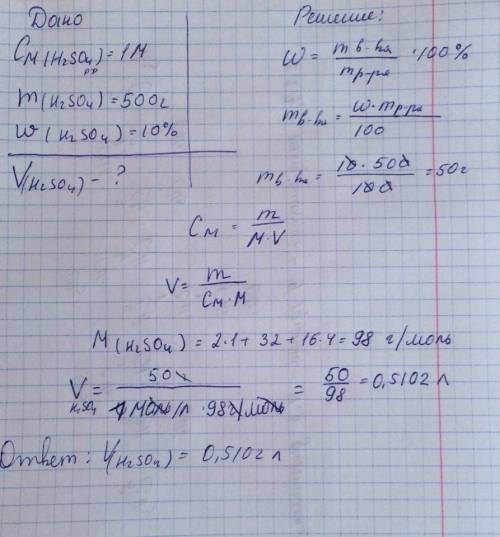 Дано
Cм (H₂SO₄) = 1M
р-р
m (H₂SO₄) = 500г
w (H₂SO₄) = 10%
V(H₂SO₄) - ?
Решение:
ω = m в-ва / m р-ра · 100%
m в-ва = ω · m р-ра / 100
m в-ва = 10 · 500 / 100 = 50г
Cм = m / M · V
V = m / Cм · M
M (H₂SO₄) = 2·1 + 32 + 16·4 = 98 г/моль
V H₂SO₄ = 50г / 1 моль/л · 98г/моль = 50 / 98 = 0,5102 л
Ответ: V(H₂SO₄) = 0,5102 л